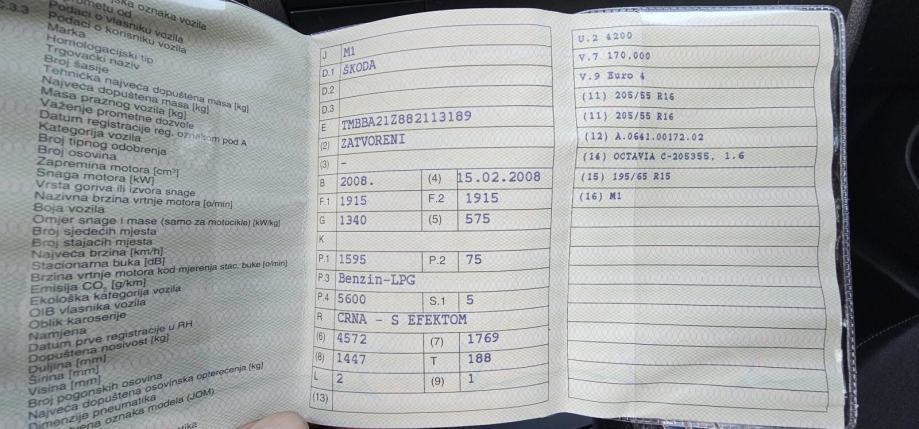 C.3.3
ska oznaka vozila
ometu od
Podaci o vlasniku vozila
Podaci o korisniku vozila
Marka
Homologacijski tip
Trgovački naziv
Broj šasije
Tehnička najveća dopuštena masa [kg]
Najveća dopuštena masa [kg]
Masa praznog vozila [kg]
Važenje prometne dozvole
Datum registracije reg. oznakom pod A
Kategorija vozila
Broj tipnog odobrenja
Broj osovina
Zapremina motora [cm³]
Snaga motora [kW]
Vrsta goriva ili izvora snage
Nazivna brzina vrtnje motora [o/min]
Boja vozila
Omjer snage i mase (samo za motocikle) [kW/kg]
Broj sjedećih mjesta
Broj stajaćih mjesta
Najveća brzina [km/h]
Stacionarna buka [dB]
Brzina vrtnje motora kod mjerenja stac. buke [o/min]
Emisija CO₂ [g/km]
Ekološka kategorija vozila
OIB vlasnika vozila
Oblik karoserije
Namjena
Datum prve registracije u RH
Dopuštena nosivost [kg]
Duljina [mm]
Širina [mm]
Visina [mm]
Broj pogonskih osovina
Najveća dopuštena osovinska opterećenja [kg]
Dimenzije pneumatika
oznaka modela (JOM)
J M1
D.1 ŠKODA
D.2
D.3
E TMBBA21Z882113189
(2) ZATVORENI
(3) –
B 2008. (4) 15.02.2008
F.1 1915 F.2 1915
G 1340 (5) 575
K
P.1 1595 P.2 75
P.3 Benzin-LPG
P.4 5600 S.1 5
R CRNA - S EFEKTOM
(6) 4572 (7) 1769
(8) 1447 T 188
L 2 (9) 1
(13)
U.2 4200
V.7 170,000
V.9 Euro 4
(11) 205/55 R16
(11) 205/55 R16
(12) A.0641.00172.02
(14) OCTAVIA C-205355, 1.6
(15) 195/65 R15
(16) M1